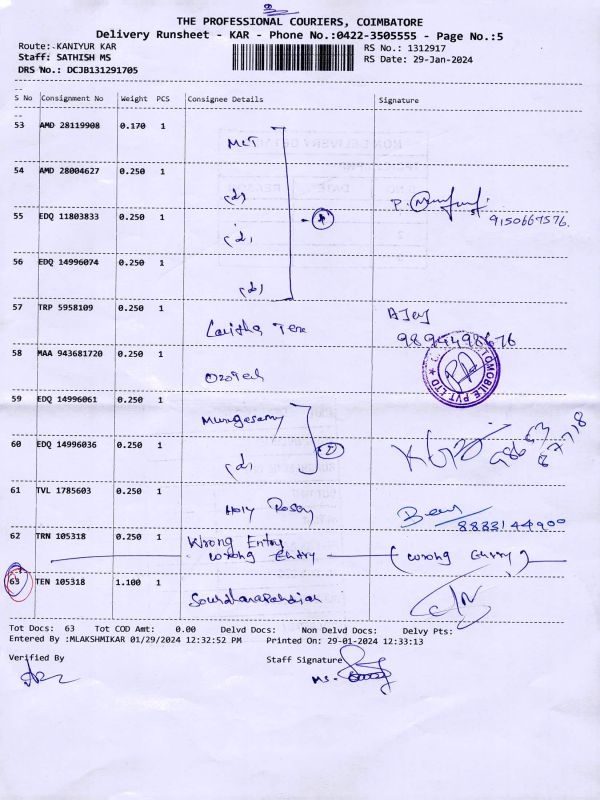 THE PROFESSIONAL COURIERS, COIMBATORE
Delivery Runsheet - KAR - Phone No.:0422-3505555 - Page No.:5
Route: KANIYUR KAR
RS No.: 1312917
Staff: SATHISH MS
RS Date: 29-Jan-2024
DRS No.: DCJB131291705
S No Consignment No Weight PCS Consignee Details Signature
53 AMD 28119908 0.170 1
MLT
54 AMD 28004627 0.250 1
(d)
P.
55 EDQ 11803833 0.250 1
9150667576.
(d)
4
56 EDQ 14996074 0.250 1
(d)
57 TRP 5958109 0.250 1
Ajay
9894498676
58 MAA 943681720 0.250 1
TOMOBILE PVT LTD
59 EDQ 14996061 0.250 1
Murugesamy
2
60 EDQ 14996036 0.250 1
(d)
61 TVL 1785603 0.250 1
Holy Rosary
8883144900
62 TRN 105318 0.250 1 Wrong Entry
wrong Entry (wrong Entry)
63 TEN 105318 1.100 1
Tot Docs: 63 Tot COD Amt: 0.00 Delvd Docs: Non Delvd Docs: Delvy Pts:
Entered By :MLAKSHMIKAR 01/29/2024 12:32:52 PM Printed On: 29-01-2024 12:33:13
Verified By Staff Signature
MS.